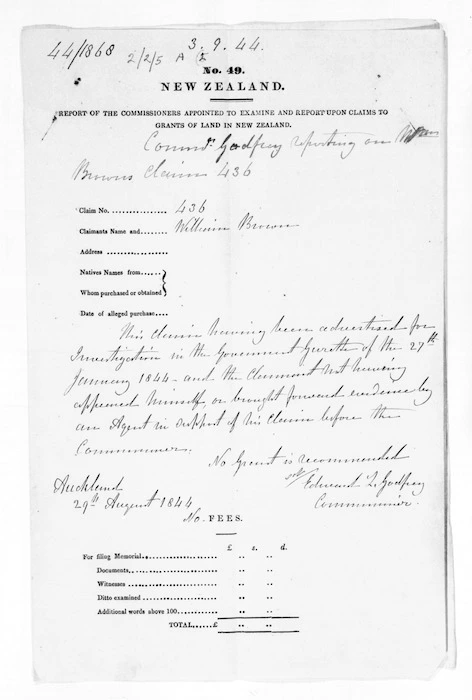 44/1868
3.9.44.
2/2/5 A
No. 49.
NEW ZEALAND.
REPORT OF THE COMMISSIONERS APPOINTED TO EXAMINE AND REPORT UPON CLAIMS TO
GRANTS OF LAND IN NEW ZEALAND.
Commr. Godfrey reporting on Wm
Browns Claim 436
Claim No. 436
Claimants Name and William Brown
Address
Natives Names from
Whom purchased or obtained
Date of alleged purchase
This Claim having been advertised for
Investigation in the Government Gazette of the 27th
January 1844 - and the Claimant not having
appeared himself, or brought forward evidence by
an Agent in support of his Claim before the
Commissioner.
No Grant is recommended
Edward L. Godfrey
Commissioner.
Auckland
29th August 1844
No. FEES.
£ s. d.
For filing Memorial
Documents
Witnesses
Ditto examined
Additional words above 100
TOTAL £